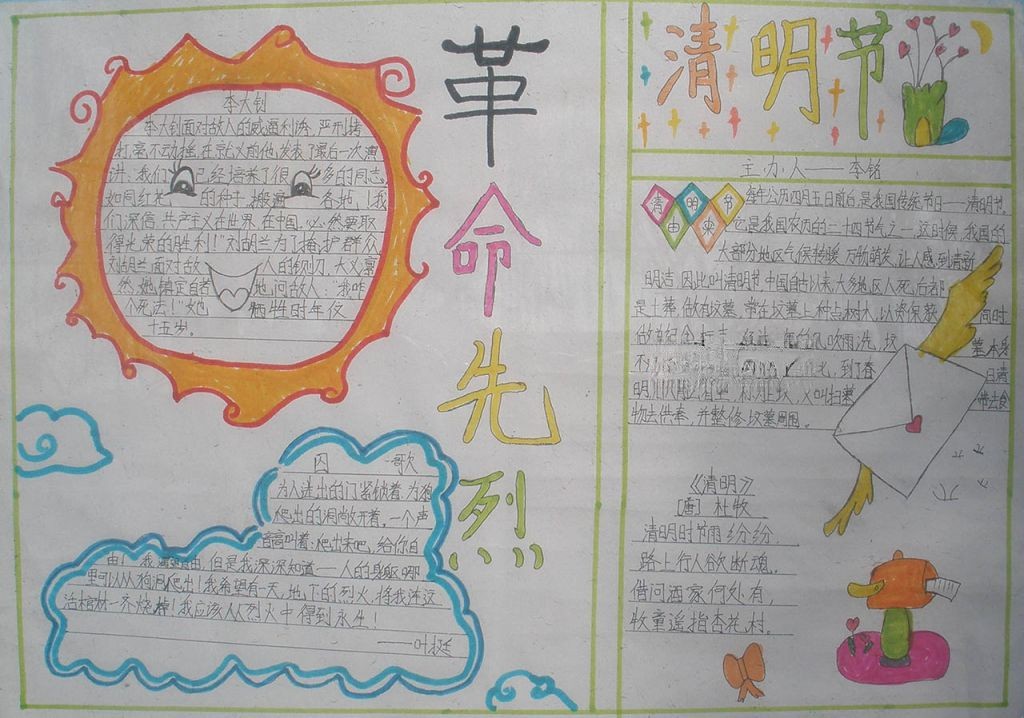 革命先烈
李大钊
李大钊面对敌人的威逼利诱、严刑拷
打,毫不动摇,在就义前他发表了最后一次演
讲:我们已经培养了很多的同志,
如同红花的种子,撒遍各地!我
们深信,共产主义在世界,在中国,必然要取
得光荣的胜利!"刘胡兰为了掩护群众
刘胡兰面对敌人的铡刀,大义凛
然,她镇定自若地问敌人:"我咋
个死法!"她牺牲时年仅
十五岁。
囚歌
为人进出的门紧锁着,为狗
爬出的洞敞开着,一个声
音高叫着:爬出来吧,给你自
由!我渴望自由,但是我深深知道——人的身躯哪
里可以从狗洞爬出!我希望有一天,地下的烈火,将我连这
活棺材一齐烧掉!我应该从烈火中得到永生!
——叶挺
清明节
主办人——李铭
清明节
由来
每年公历四月五日前后,是我国传统节日——清明节,
它是我国农历的二十四节气之一,这时候,我国的
大部分地区气候转暖,万物萌发,让人感到清新
明洁,因此叫清明节,中国自古以来,大多地区人死后都
是土葬,做有坟墓,常在坟墓上种点树木,以资保护,同时
做些纪念标志,吹雨洗,坟墓本身
不,到了春日清
明,又叫扫墓,带去食
物去供奉,并整修坟墓周围。
《清明》
[唐] 杜牧
清明时节雨纷纷,
路上行人欲断魂。
借问酒家何处有,
牧童遥指杏花村。